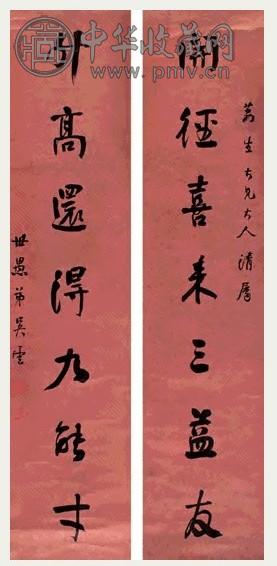 中华收藏网
www.pmv.cn
生大兄大人清屬
開徑喜来三益友
升高還得九能才
世愚弟吳雲